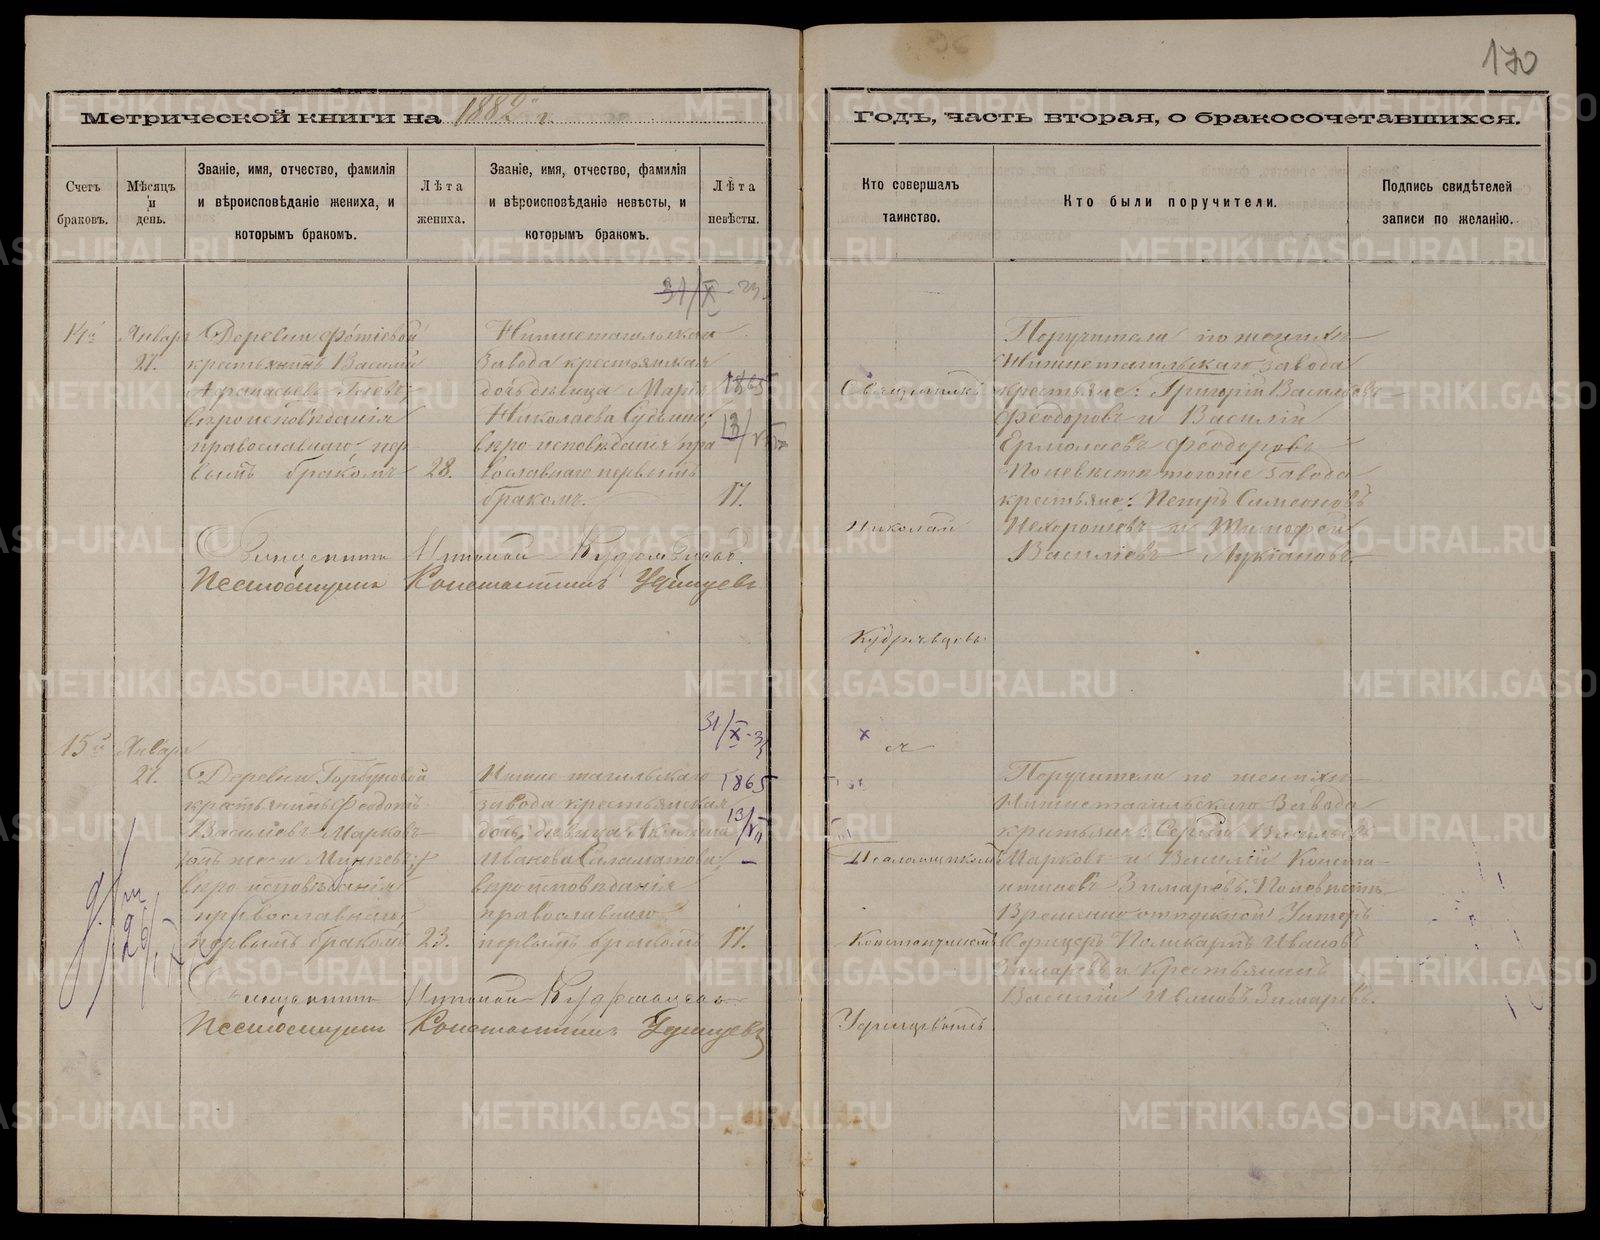 170
Метрической книги на 1882 г.
Годъ, часть вторая, о бракосочетавшихся.
Счетъ браковъ.
Мѣсяцъ и день.
Званіе, имя, отчество, фамилія
и вѣроисповѣданіе жениха, и
которымъ бракомъ.
Лѣта
жениха.
Званіе, имя, отчество, фамилія
и вѣроисповѣданіе невѣсты, и
которымъ бракомъ.
Лѣта
невѣсты.
Кто совершалъ
таинство.
Кто были поручители.
Подпись свидѣтелей
записи по желанію.
31/X
14й
Января
27.
Деревни Фотіевой
крестьянинъ Василій
Афанасьевъ
вѣроисповѣданія
православнаго, пер
вымъ бракомъ
28.
Нижнетагильскаго
завода крестьянская
дочь девица Марія
Николаева
вѣроисповѣданія пра
вославнаго первымъ
бракомъ.
1865
13/VII
17.
Священникъ
Николай
Кудрявцевъ
Поручители по женихѣ
Нижнетагильскаго завода
крестьяне: Григорій Васильевъ
Феодоровъ и Василій
Ермолаевъ Феодоровъ
По невѣстѣ тогоже завода
крестьяне: Петръ Симеоновъ
и Тимофей
Василіевъ Лукіановъ.
Священникъ Николай Кудрявцевъ.
Псаломщикъ Константинъ Удинцевъ
15й
Января
27.
Деревни Горбуновой
крестьянинъ Феодотъ
Василіевъ Марковъ
вѣроисповѣданія
православнаго
первымъ бракомъ
23.
Нижнетагильскаго
завода крестьянская
дочь, девица Акилина
Иванова Саламатова
вѣроисповѣданія
православнаго
первымъ бракомъ
31/X
1865
13/VII
17.
Псаломщикомъ
Константиномъ
Удинцевымъ
Поручители по женихѣ
Нижнетагильскаго Завода
крестьяне: Сергій Васильевъ
Марковъ и Василій Конста-
нтиновъ Зимаревъ. По невѣстѣ
Временно отпускной Унтеръ
Офицеръ Поликарпъ Ивановъ
Зимаревъ и Крестьянинъ
Василій Ивановъ Зимаревъ.
Священникъ Николай Кудрявцевъ
Псаломщикъ Константинъ Удинцевъ
METRIKI.GASO-URAL.RU